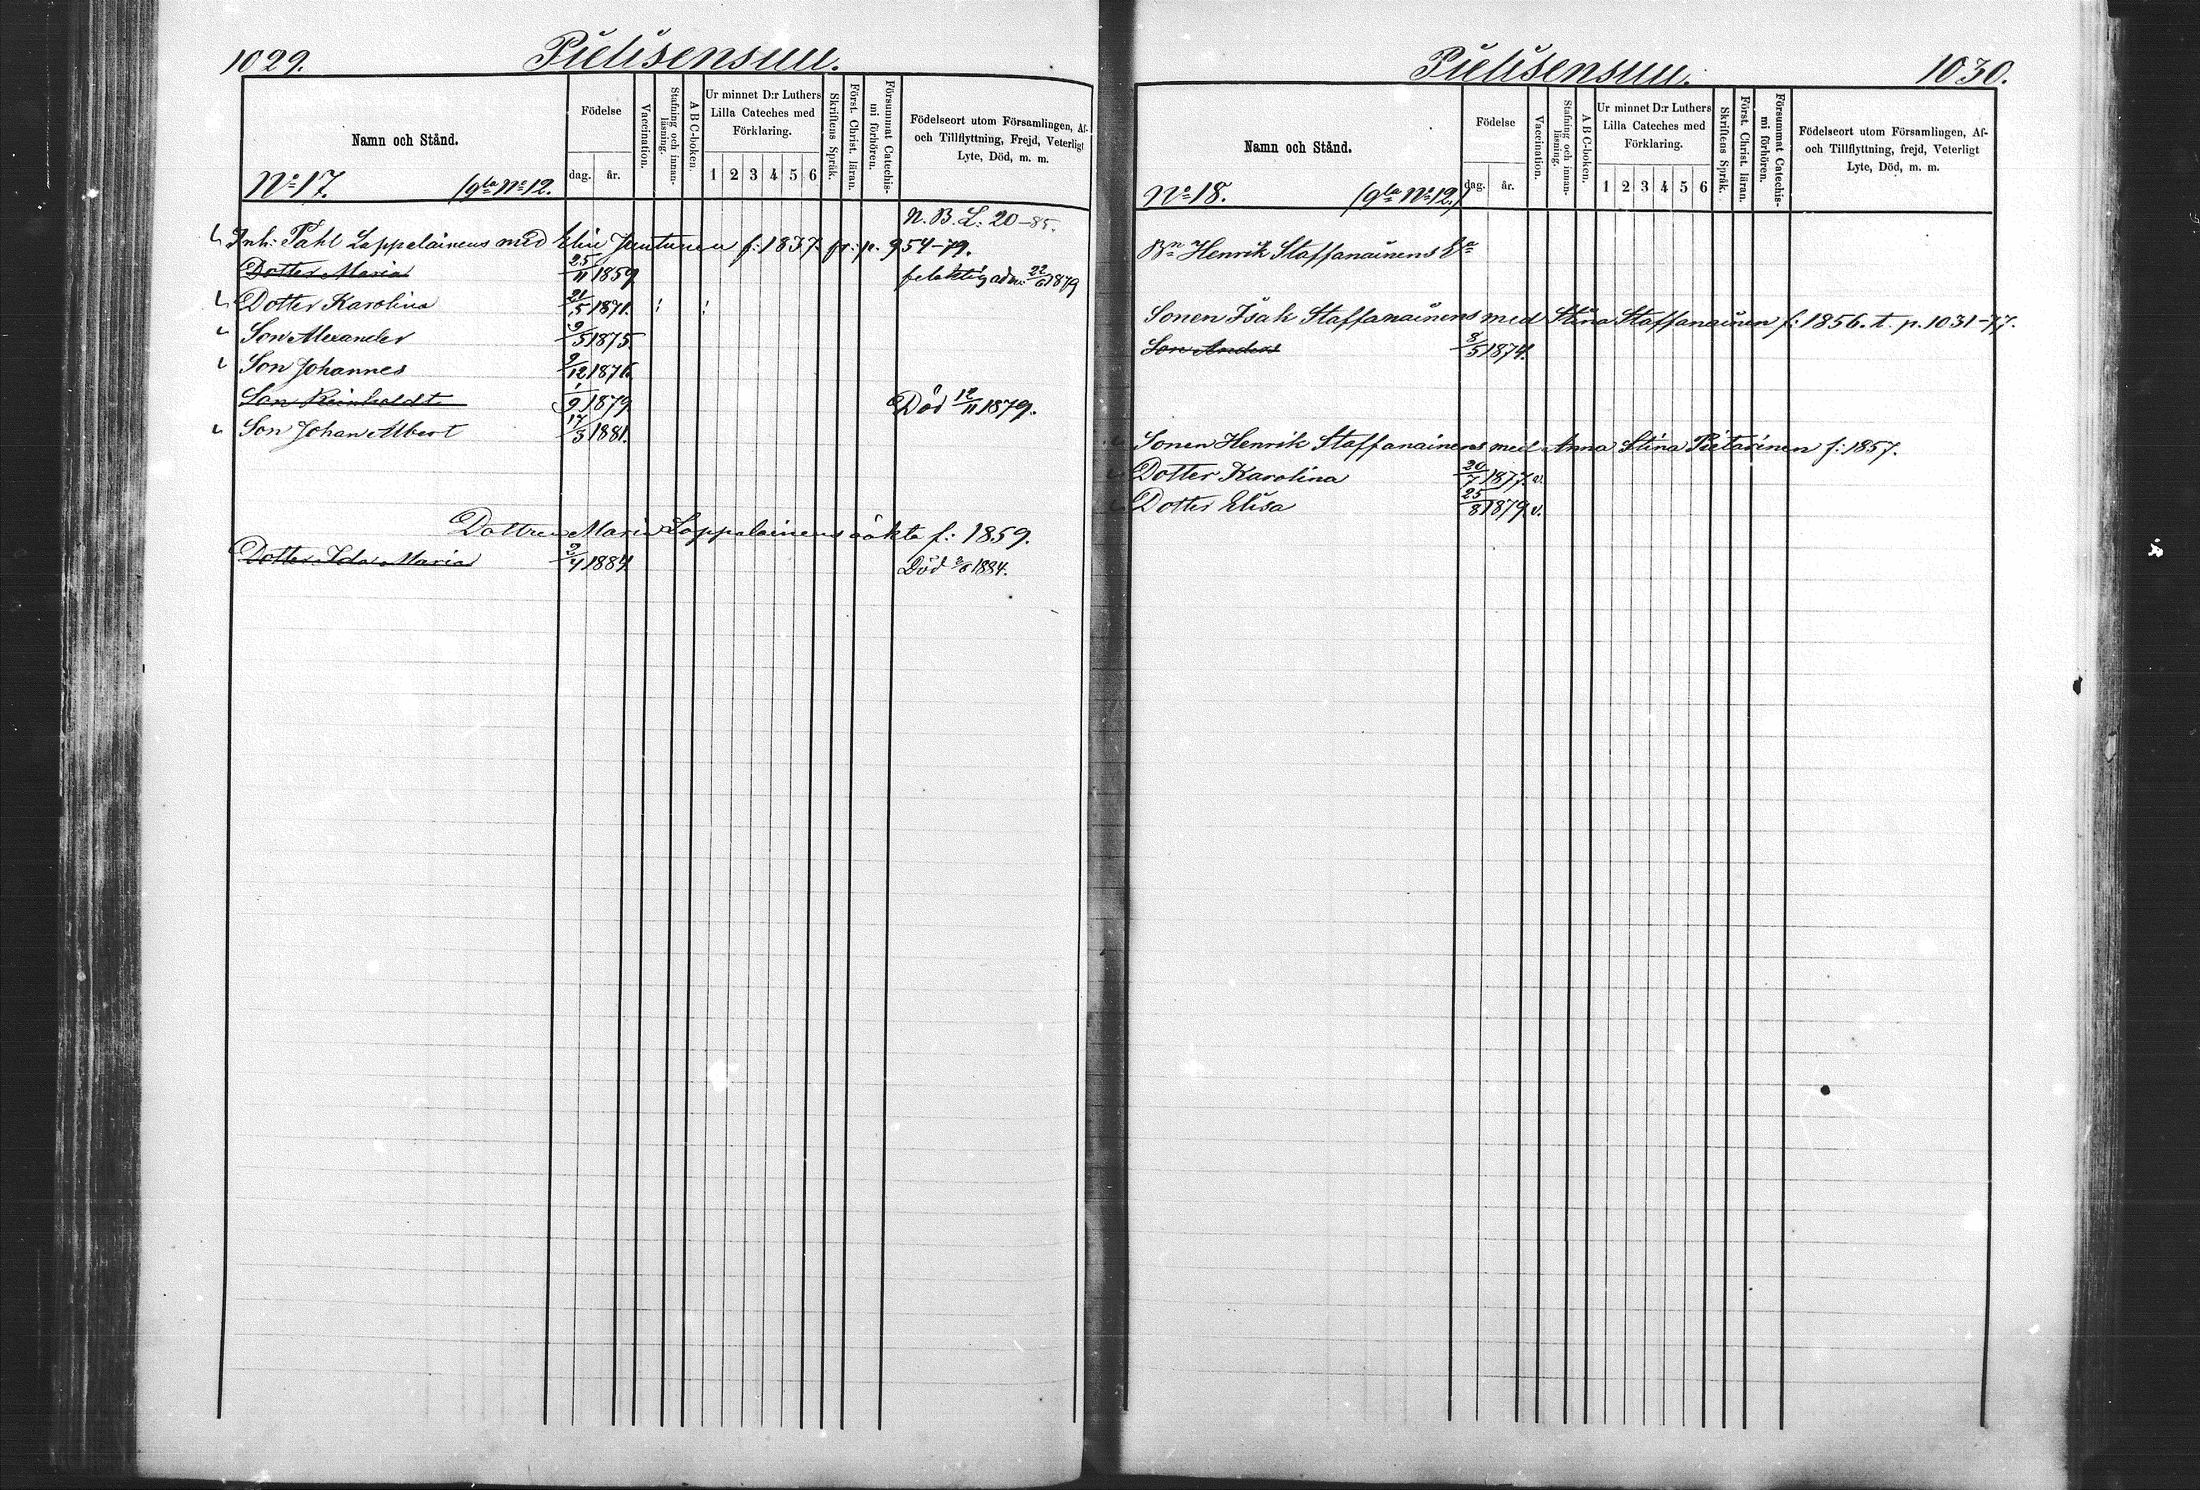 1029. Pielisensuu.
Namn och Stånd.
Födelse
dag. år.
Vaccination.
Stafning och innanläsning.
ABC-boken.
Ur minnet D:r Luthers Lilla Cateches med Förklaring.
1 2 3 4 5 6
Skriftens Språk.
Först. Christ. läran.
Försummat Catechismi förhören.
Födelseort utom Församlingen, Af- och Tillflyttning, Frejd, Veterligt Lyte, Död, m. m.
No 17. (gla No 12.
N. B. L. 20-85.
Inh: Påhl Lappalainens med Elin Juntunen f: 1837. fr: p. 954-79.
Dotter Maria 25/11 1859 22/6 1879
Dotter Karolina 21/5 1871.
Son Alexander 9/5 1875
Son Johannes 9/12 1876
Son Reinholdt 1/9 1879 Död 12/11 1879.
Son Johan Albert 17/3 1881.
Dottren Maria Lappalainens oäkta f: 1859.
Dotter Ida Maria 2/4 1884 Död 1884.
Pielisensuu. 1030.
Namn och Stånd.
Födelse
dag. år.
Vaccination.
Stafning och innanläsning.
ABC-boken.
Ur minnet D:r Luthers Lilla Cateches med Förklaring.
1 2 3 4 5 6
Skriftens Språk.
Först. Christ. läran.
Försummat Catechismi förhören.
Födelseort utom Församlingen, Af- och Tillflyttning, frejd, Veterligt Lyte, Död, m. m.
No 18. (gla No 12.)
Bn Henrik Staffanainens Ea
Sonen Isak Staffanainens med Stina Staffanainen f: 1856. t. p. 1031-77.
Son Anders 8/5 1874.
Sonen Henrik Staffanainens med Anna Stina Pietarinen f: 1857.
Dotter Karolina 20/7 1877. v.
Dotter Elisa 25/8 1879. v.